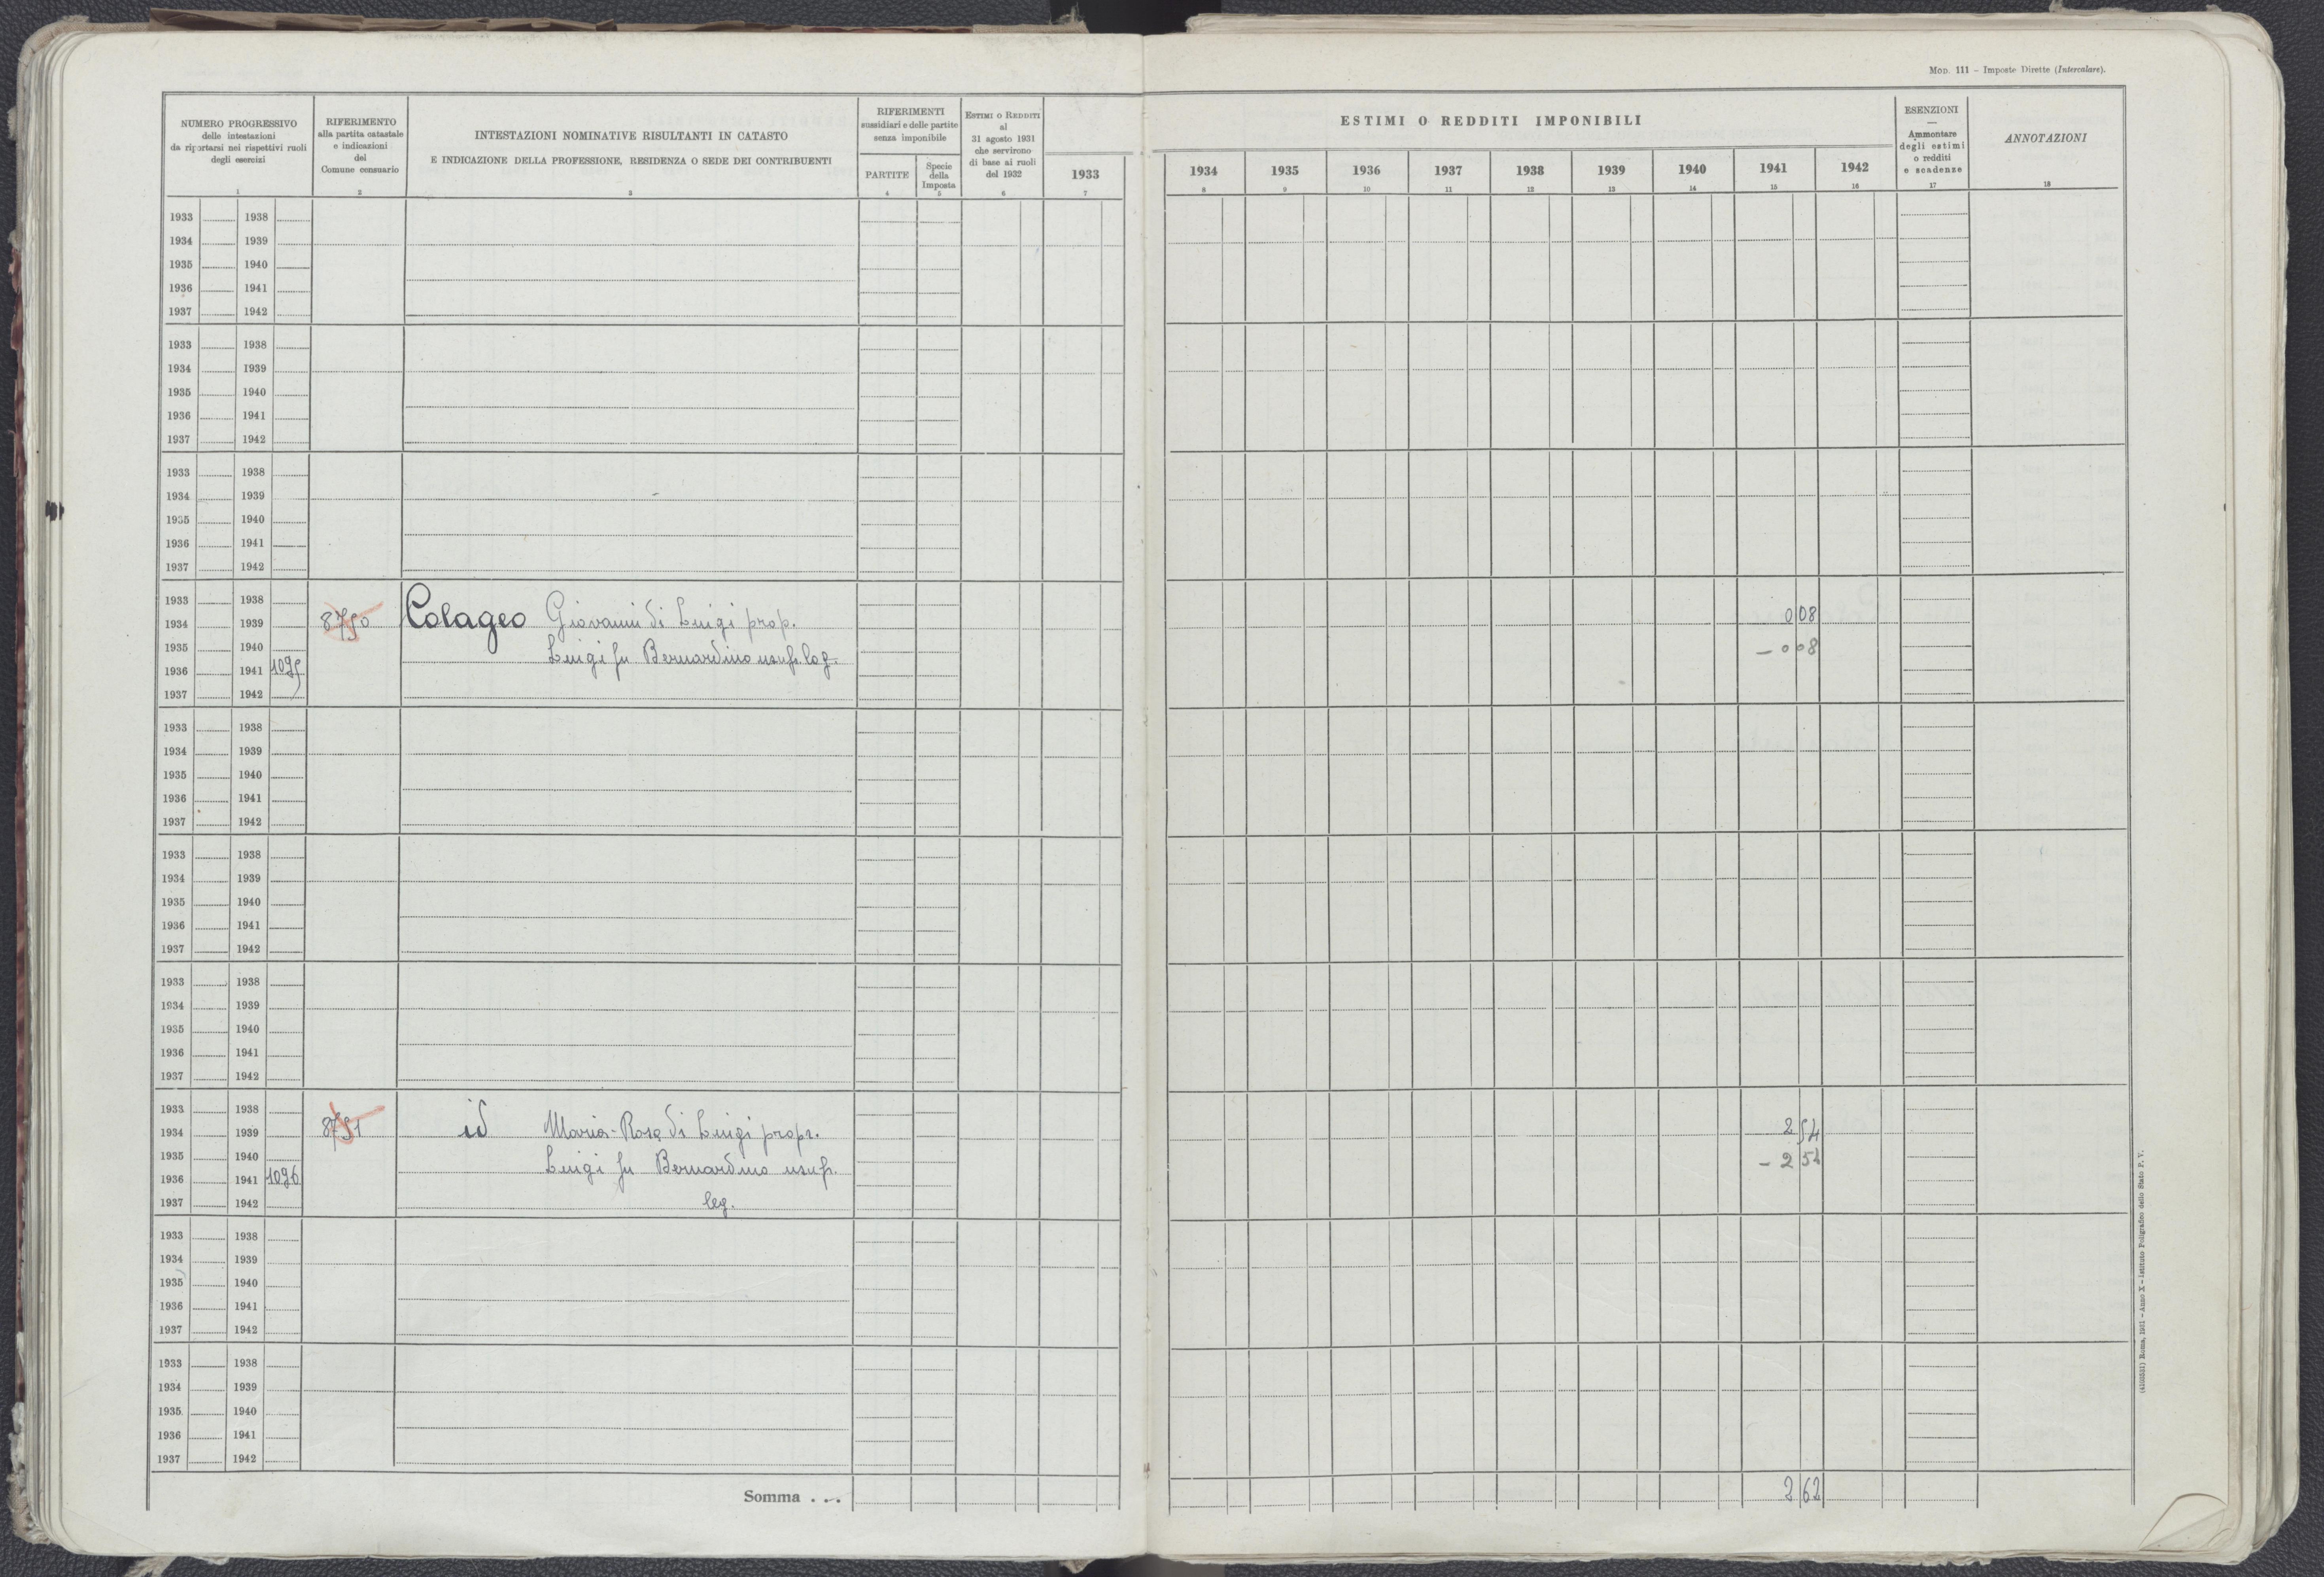 MOD. 111 - Imposte Dirette (Intercalare).
NUMERO PROGRESSIVO
delle intestazioni
da riportarsi nei rispettivi ruoli
degli esercizi
1
RIFERIMENTO
alla partita catastale
e indicazioni
del
Comune censuario
2
INTESTAZIONI NOMINATIVE RISULTANTI IN CATASTO
E INDICAZIONE DELLA PROFESSIONE, RESIDENZA O SEDE DEI CONTRIBUENTI
3
RIFERIMENTI
sussidiari e delle partite
senza imponibile
PARTITE
4
Specie
della
Imposta
5
ESTIMI O REDDITI
al
31 agosto 1931
che servirono
di base ai ruoli
del 1932
6
ESTIMI O REDDITI IMPONIBILI
1933 1934 1935 1936 1937 1938 1939 1940 1941 1942
7 8 9 10 11 12 13 14 15 16
ESENZIONI
—
Ammontare
degli estimi
o redditi
e scadenze
17
ANNOTAZIONI
18
1933 1938
1934 1939
1935 1940
1936 1941
1937 1942
1933 1938
1934 1939
1935 1940
1936 1941
1937 1942
1933 1938
1934 1939
1935 1940
1936 1941
1937 1942
1933 1938
1934 1939 8750 Colageo Giovanni di Luigi prop. 0 08
1935 1940 Luigi fu Bernardino usuf. leg. - 0 08
1936 1941 1095
1937 1942
1933 1938
1934 1939
1935 1940
1936 1941
1937 1942
1933 1938
1934 1939
1935 1940
1936 1941
1937 1942
1933 1938
1934 1939
1935 1940
1936 1941
1937 1942
1933 1938
1934 1939 8751 id Maria-Rosa di Luigi propr. 2 54
1935 1940 Luigi fu Bernardino usuf. - 2 54
1936 1941 1096
1937 1942 leg.
1933 1938
1934 1939
1935 1940
1936 1941
1937 1942
1933 1938
1934 1939
1935 1940
1936 1941
1937 1942
Somma . . . 2 62
(4100551) Roma, 1931 - Anno X - Istituto Poligrafico dello Stato P. V.